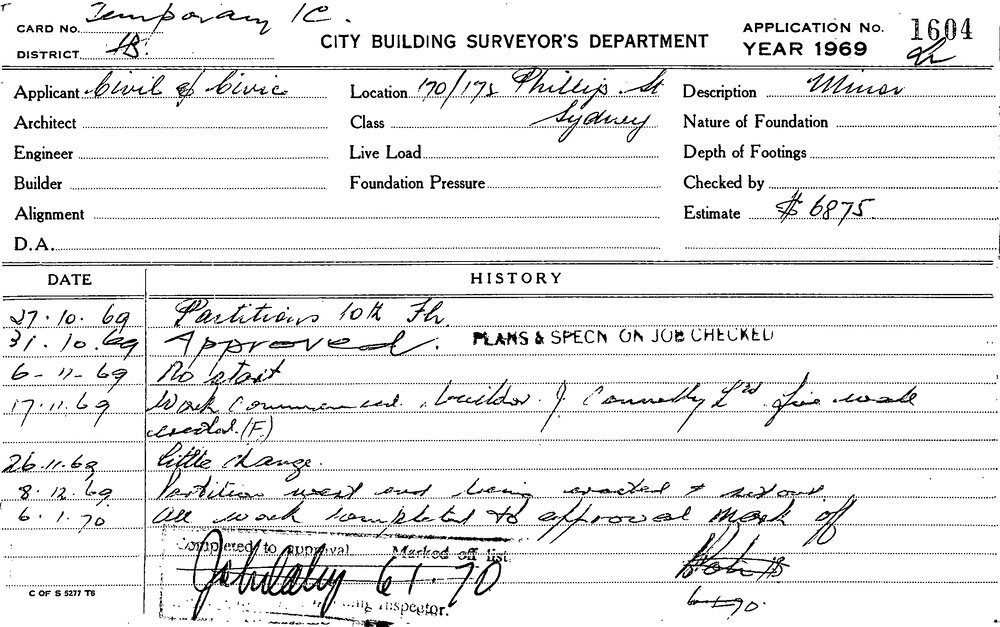 CARD No. Temporary IC.
DISTRICT HB.
CITY BUILDING SURVEYOR'S DEPARTMENT
APPLICATION No. 1604
YEAR 1969
Applicant Civil & Civic
Location 170/173 Phillip St
Sydney
Description Minor
Architect
Class
Nature of Foundation
Engineer
Live Load
Depth of Footings
Builder
Foundation Pressure
Checked by
Alignment
Estimate $6875.
D.A.
DATE HISTORY
27.10.69 Partitions 10th Flr.
31.10.69 Approved. PLANS & SPECN ON JOB CHECKED
6-11-69 No start
17.11.69 Work commenced. builder. J. Connolly Ltd. fire wall
erected. (F.)
26.11.69 little change.
8.12.69 Partition west end being erected &
6.1.70 All work completed to approval Mark off
Completed to approval Marked off list.
6 1.70
Inspector.
6-1-70.
C OF S 5277 T6